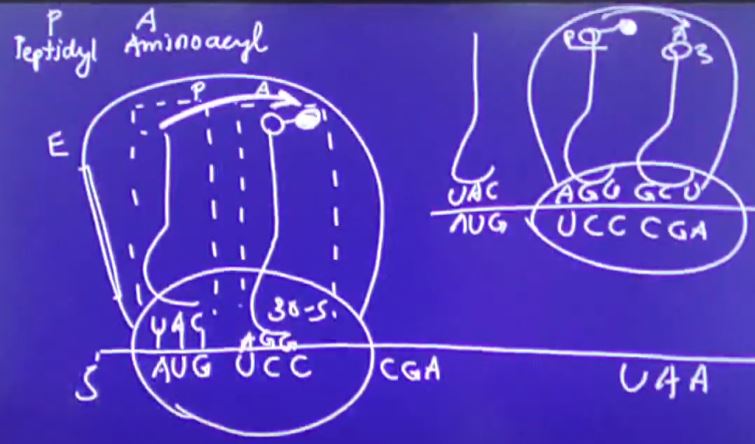 P A
Peptidyl Aminoacyl
P A
E
UAC AGG 30-S.
5' AUG UCC CGA UAA
P A
3
UAC AGG GCU
AUG UCC CGA